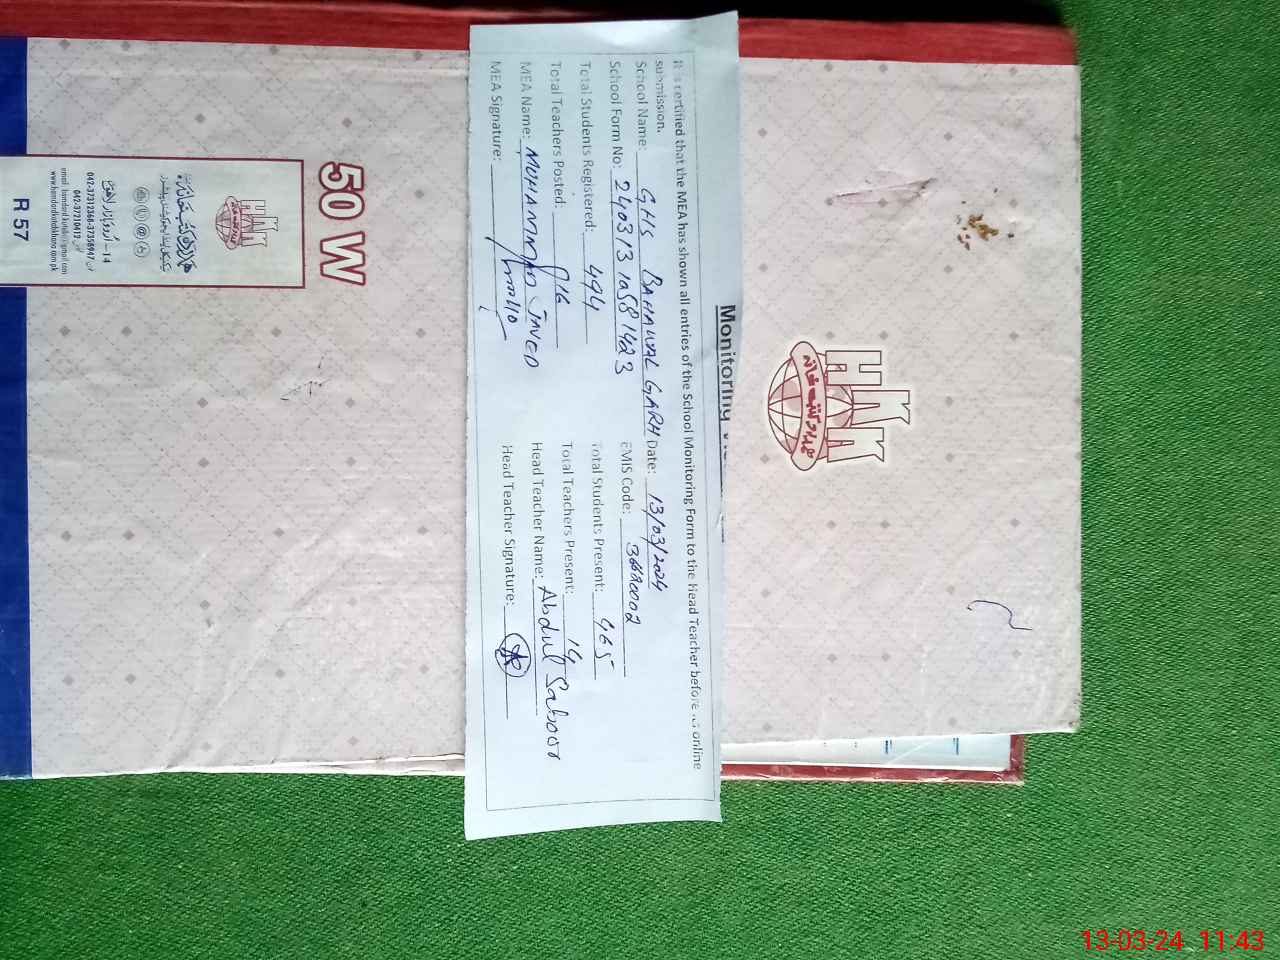 Monitoring
It is certified that the MEA has shown all entries of the School Monitoring Form to the Head Teacher before its online
submission.
School Name: GHS BAHAWAL GARH Date: 13/03/2024
School Form No: EMIS Code:
Total Students Registered: 494 Total Students Present: 465
Total Teachers Posted: 16 Total Teachers Present: 14
MEA Name: MUHAMMAD JAVED Head Teacher Name: Abdul Saboor
MEA Signature: Head Teacher Signature:
HKK
ہمدرد کتب خانہ
50 W
HKK
ہمدرد کتب خانہ
14-اردو بازار لاہور
042-37312368-37358947
042-37210412
R 57
13-03-24 11:43